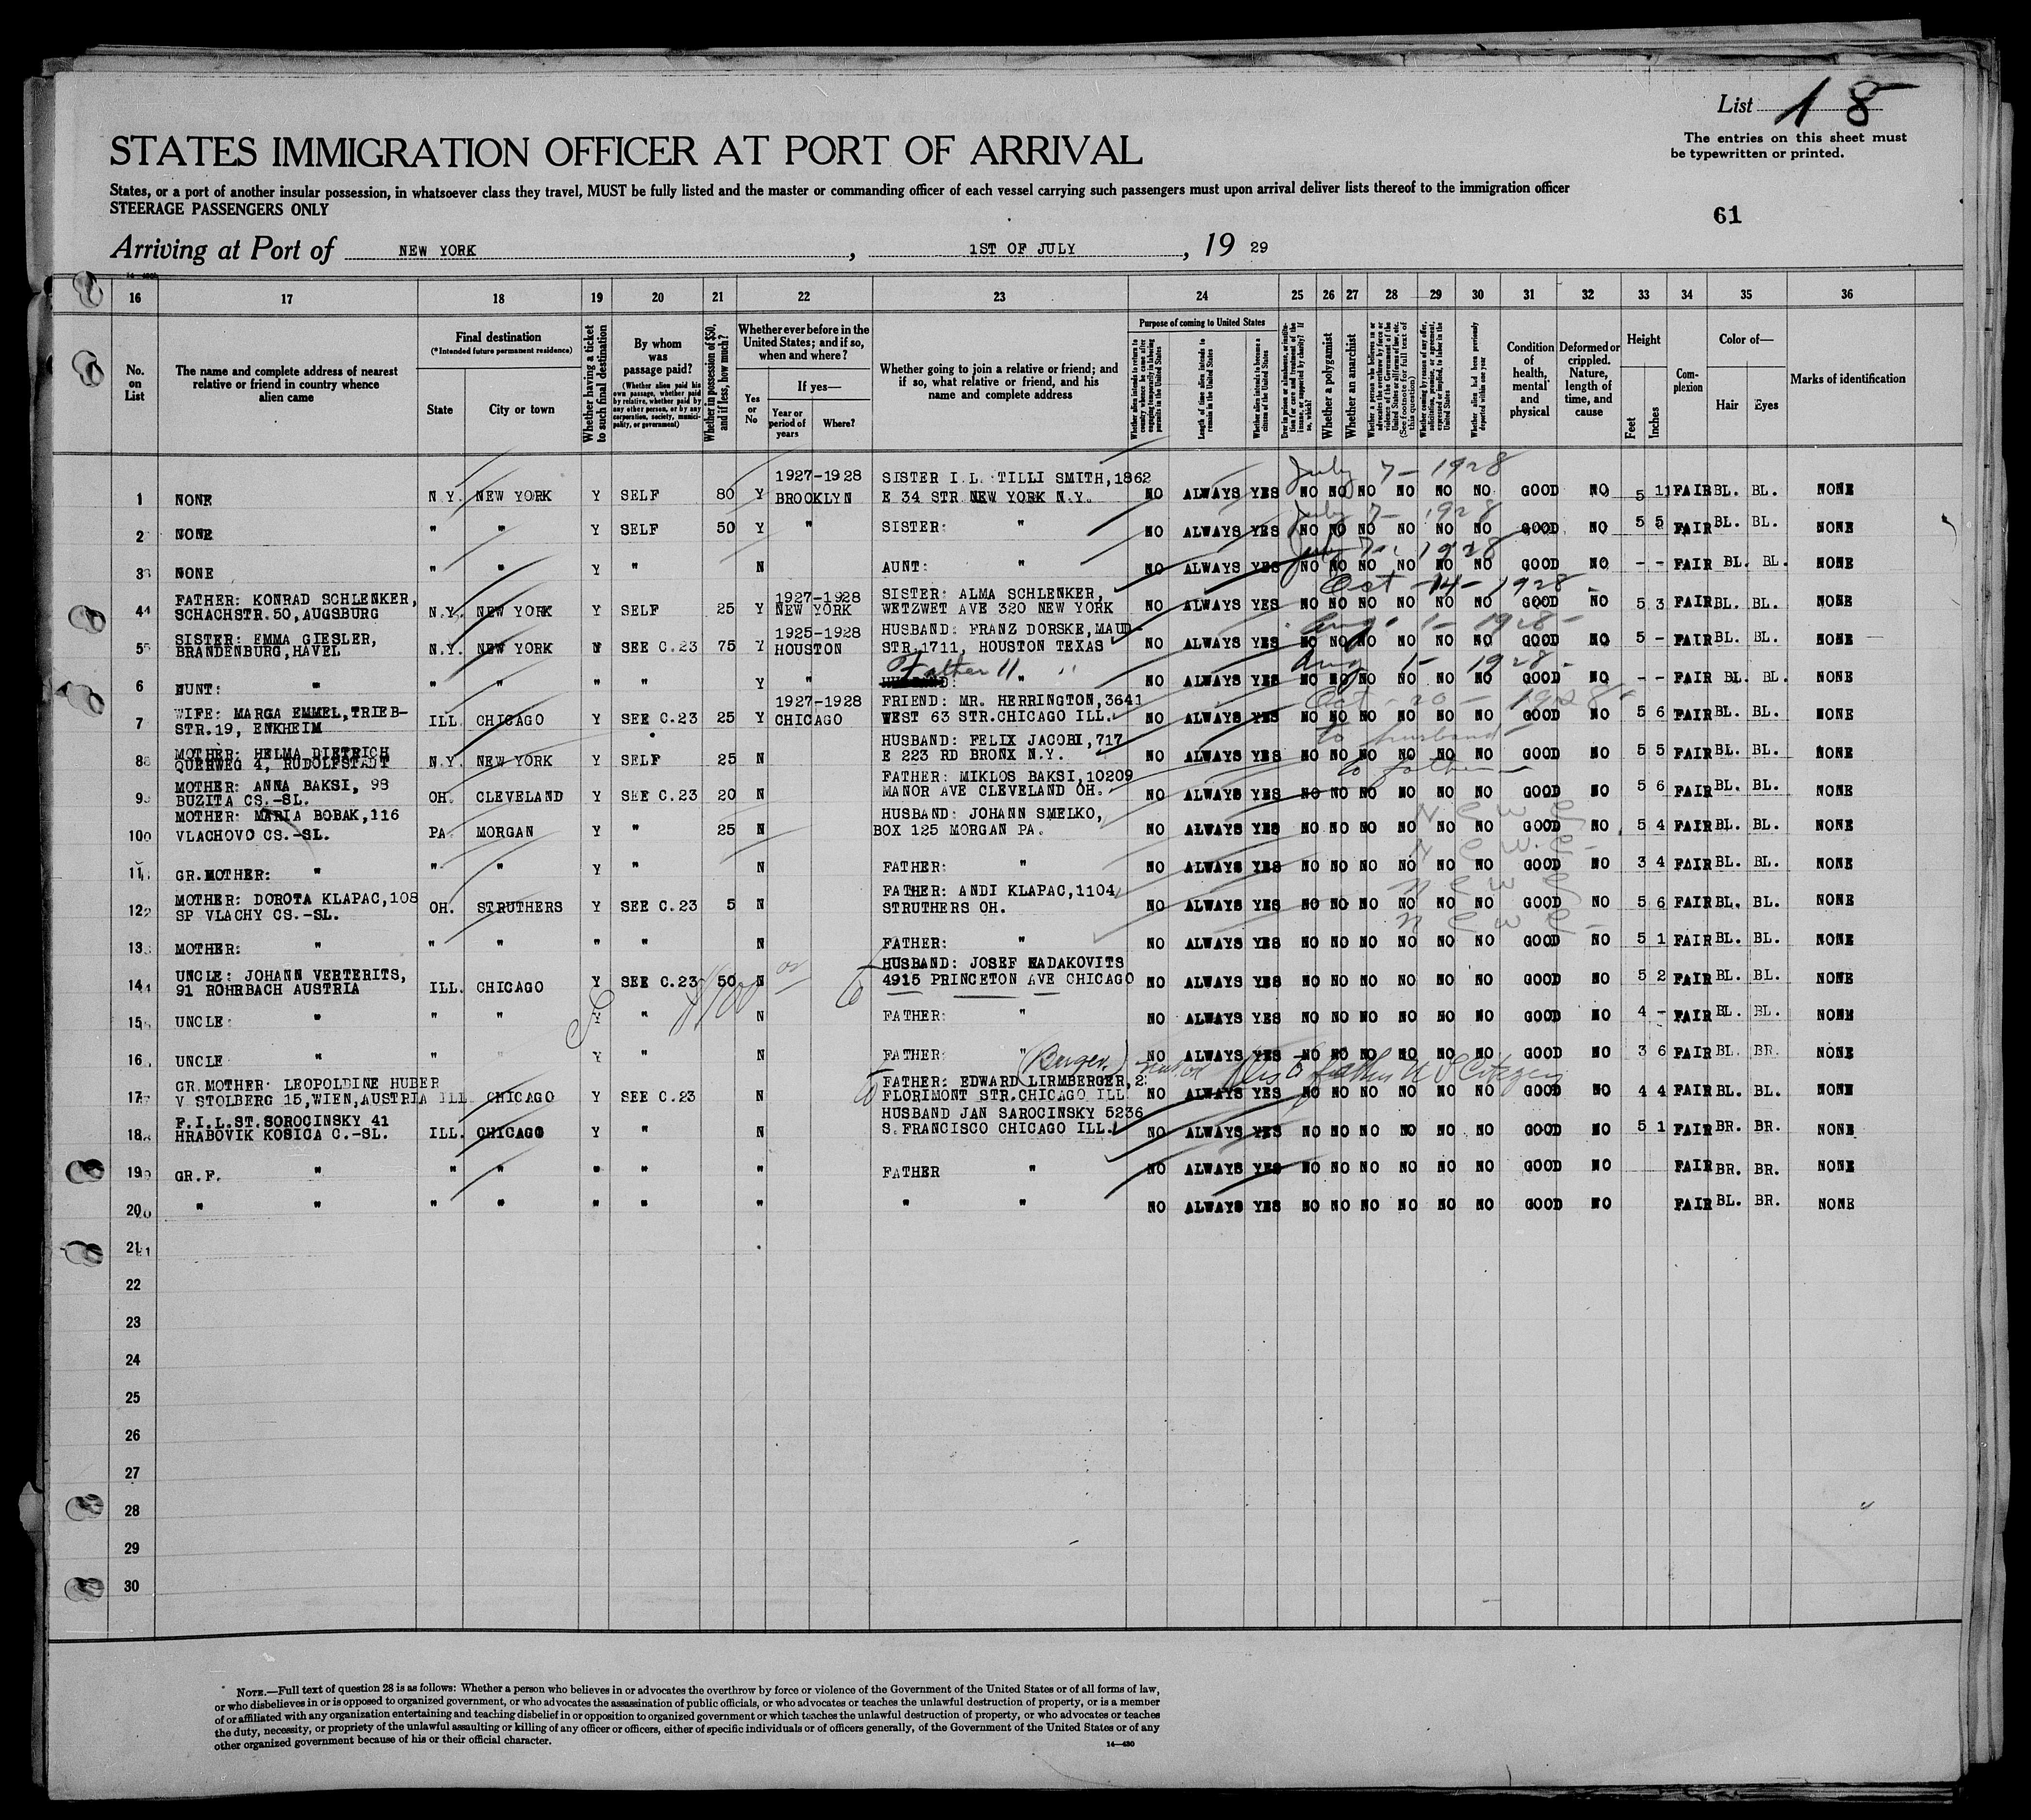 List 18
The entries on this sheet must
be typewritten or printed.
STATES IMMIGRATION OFFICER AT PORT OF ARRIVAL
States, or a port of another insular possession, in whatsoever class they travel, MUST be fully listed and the master or commanding officer of each vessel carrying such passengers must upon arrival deliver lists thereof to the immigration officer
STEERAGE PASSENGERS ONLY
61
Arriving at Port of NEW YORK, 1ST OF JULY, 19 29
16 17 18 19 20 21 22 23 24 25 26 27 28 29 30 31 32 33 34 35 36
No. on List
The name and complete address of nearest relative or friend in country whence alien came
Final destination
(*Intended future permanent residence)
State
City or town
Whether having a ticket to such final destination
By whom was passage paid?
(Whether alien paid his own passage, whether paid by relative, whether paid by any other person, or by any corporation, society, municipality, or government)
Whether in possession of $50, and if less, how much?
Whether ever before in the United States; and if so, when and where?
Yes or No
If yes—
Year or period of years
Where?
Whether going to join a relative or friend; and if so, what relative or friend, and his name and complete address
Purpose of coming to United States
Whether alien intends to return to country whence he came after engaging temporarily in laboring pursuits in the United States
Length of time alien intends to remain in the United States
Whether alien intends to become a citizen of the United States
Ever in prison or almshouse, or institution for care and treatment of the insane, or supported by charity? If so, which?
Whether a polygamist
Whether an anarchist
Whether a person who believes in or advocates the overthrow by force or violence of the Government of the United States or all forms of law, etc. (See footnote for full text of this question)
Whether coming by reason of any offer, solicitation, promise, or agreement, expressed or implied, to labor in the United States
Whether alien had been previously deported within one year
Condition of health, mental and physical
Deformed or crippled. Nature, length of time, and cause
Height
Feet
Inches
Complexion
Color of—
Hair
Eyes
Marks of identification
July 7 - 1928
1927-1928 SISTER I.L. TILLI SMITH,1862
1 NONE N.Y. NEW YORK Y SELF 80 Y BROOKLYN E 34 STR NEW YORK N.Y. NO ALWAYS YES NO NO NO NO NO NO GOOD NO 5 11 FAIR BL. BL. NONE
July 7 - 1928
2 NONE " " Y SELF 50 Y " SISTER: " NO ALWAYS YES NO NO NO NO NO NO GOOD NO 5 5 FAIR BL. BL. NONE
July 7 - 1928
3 NONE " " Y " N AUNT: " NO ALWAYS YES NO NO NO NO NO NO GOOD NO - - FAIR BL. BL. NONE
Oct - 14 - 1928 -
FATHER: KONRAD SCHLENKER, 1927-1928 SISTER: ALMA SCHLENKER,
4 SCHACHSTR.50,AUGSBURG N.Y. NEW YORK Y SELF 25 Y NEW YORK WETZWET AVE 320 NEW YORK NO ALWAYS YES NO NO NO NO NO NO GOOD NO 5 3 FAIR BL. BL. NONE
Aug - 1 - 1928 -
SISTER: EMMA GIESLER, 1925-1928 HUSBAND: FRANZ DORSKE,MAUD-
5 BRANDENBURG,HAVEL N.Y. NEW YORK N SEE C.23 75 Y HOUSTON STR.1711, HOUSTON TEXAS NO ALWAYS YES NO NO NO NO NO NO GOOD NO 5 - FAIR BL. BL. NONE
Father " " Aug 1 - 1928 -
6 NUNT: " " " " " Y " " NO ALWAYS YES NO NO NO NO NO NO GOOD NO - - FAIR BL. BL. NONE
Oct - 20 - 1928
WIFE: MARGA EMMEL,TRIEB- 1927-1928 FRIEND: MR. HERRINGTON,3641
7 STR.19, ENKHEIM ILL. CHICAGO Y SEE C.23 25 Y CHICAGO WEST 63 STR.CHICAGO ILL. NO ALWAYS YES NO NO NO NO NO NO GOOD NO 5 6 FAIR BL. BL. NONE
to husband -
MOTHER: HELMA DIETRICH HUSBAND: FELIX JACOBI,717
8 QUERWEG 4, RUDOLFSTADT N.Y. NEW YORK Y SELF 25 N E 223 RD BRONX N.Y. NO ALWAYS YES NO NO NO NO NO NO GOOD NO 5 5 FAIR BL. BL. NONE
to father -
MOTHER: ANNA BAKSI, 98 FATHER: MIKLOS BAKSI,10209
9 BUZITA CS.-SL. OH. CLEVELAND Y SEE C.23 20 N MANOR AVE CLEVELAND OH. NO ALWAYS YES NO NO NO NO NO NO GOOD NO 5 6 FAIR BL. BL. NONE
MOTHER: MARIA BOBAK,116 HUSBAND: JOHANN SMELKO,
10 VLACHOVO CS.-SL. PA. MORGAN Y " 25 N BOX 125 MORGAN PA. NO ALWAYS YES NO NO NO NO NO NO GOOD NO 5 4 FAIR BL. BL. NONE
11 GR.MOTHER: " " " Y " N FATHER: " NO ALWAYS YES NO NO NO NO NO NO GOOD NO 3 4 FAIR BL. BL. NONE
MOTHER: DOROTA KLAPAC,108 FATHER: ANDI KLAPAC,1104
12 SP VLACHY CS.-SL. OH. STRUTHERS Y SEE C.23 5 N STRUTHERS OH. NO ALWAYS YES NO NO NO NO NO NO GOOD NO 5 6 FAIR BL. BL. NONE
13 MOTHER: " " " " " N FATHER: " NO ALWAYS YES NO NO NO NO NO NO GOOD NO 5 1 FAIR BL. BL. NONE
UNCLE: JOHANN VERTERITS, HUSBAND: JOSEF RADAKOVITS
14 91 ROHRBACH AUSTRIA ILL. CHICAGO Y SEE C.23 50 N 4915 PRINCETON AVE CHICAGO NO ALWAYS YES NO NO NO NO NO NO GOOD NO 5 2 FAIR BL. BL. NONE
$100
15 UNCLE: " " " Y " N FATHER: " NO ALWAYS YES NO NO NO NO NO NO GOOD NO 4 - FAIR BL. BL. NONE
16 UNCLE " " " Y " N FATHER: " NO ALWAYS YES NO NO NO NO NO NO GOOD NO 3 6 FAIR BL. BR. NONE
(Berger.) father U S Citizen
GR.MOTHER: LEOPOLDINE HUBER FATHER: EDWARD LIRMBERGER,2
17 V STOLBERG 15,WIEN,AUSTRIA ILL CHICAGO Y SEE C.23 N FLORIMONT STR.CHICAGO ILL NO ALWAYS YES NO NO NO NO NO NO GOOD NO 4 4 FAIR BL. BL. NONE
F.I.L.ST.SOROCINSKY 41 HUSBAND JAN SAROCINSKY 5236
18 HRABOVIK KOSICA C.-SL. ILL. CHICAGO Y " N S.FRANCISCO CHICAGO ILL. NO ALWAYS YES NO NO NO NO NO NO GOOD NO 5 1 FAIR BR. BR. NONE
19 GR.F. " " " " " " FATHER " NO ALWAYS YES NO NO NO NO NO NO GOOD NO FAIR BR. BR. NONE
20 " " " " " " " " " NO ALWAYS YES NO NO NO NO NO NO GOOD NO FAIR BL. BR. NONE
21
22
23
24
25
26
27
28
29
30
NOTE.—Full text of question 28 is as follows: Whether a person who believes in or advocates the overthrow by force or violence of the Government of the United States or of all forms of law,
or who disbelieves in or is opposed to organized government, or who advocates the assassination of public officials, or who advocates or teaches the unlawful destruction of property, or is a member
of or affiliated with any organization entertaining and teaching disbelief in or opposition to organized government or which teaches the unlawful destruction of property, or who advocates or teaches
the duty, necessity, or propriety of the unlawful assaulting or killing of any officer or officers, either of specific individuals or of officers generally, of the Government of the United States or of any
other organized government because of his or their official character.
14—430